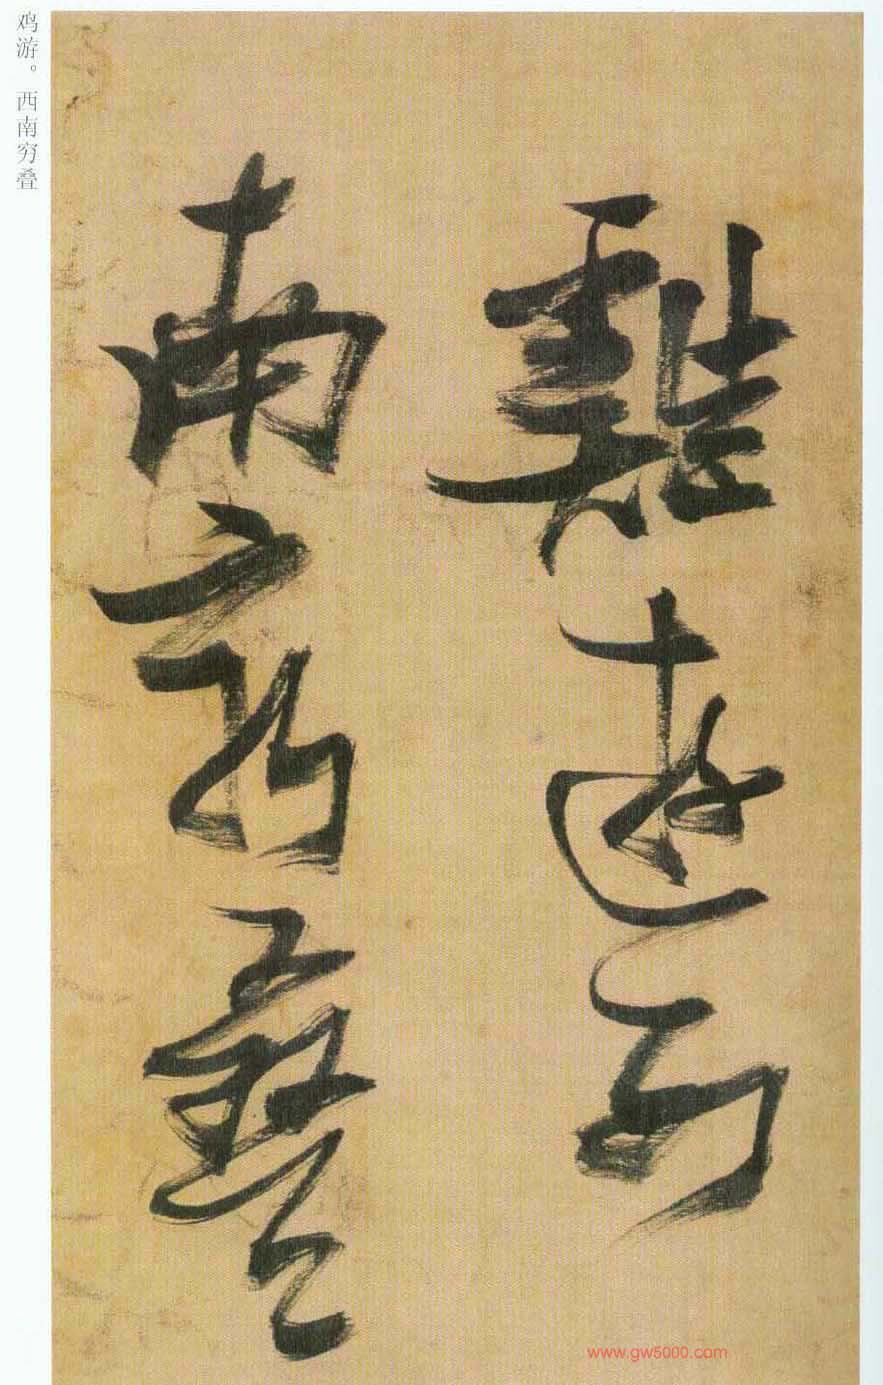 鸡游。西南穷叠
雞遊西
南窮疊
www.gw5000.com